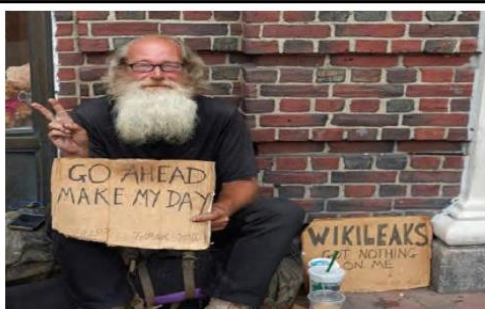 GO AHEAD
MAKE MY DAY
WIKILEAKS
GOT NOTHING
ON ME